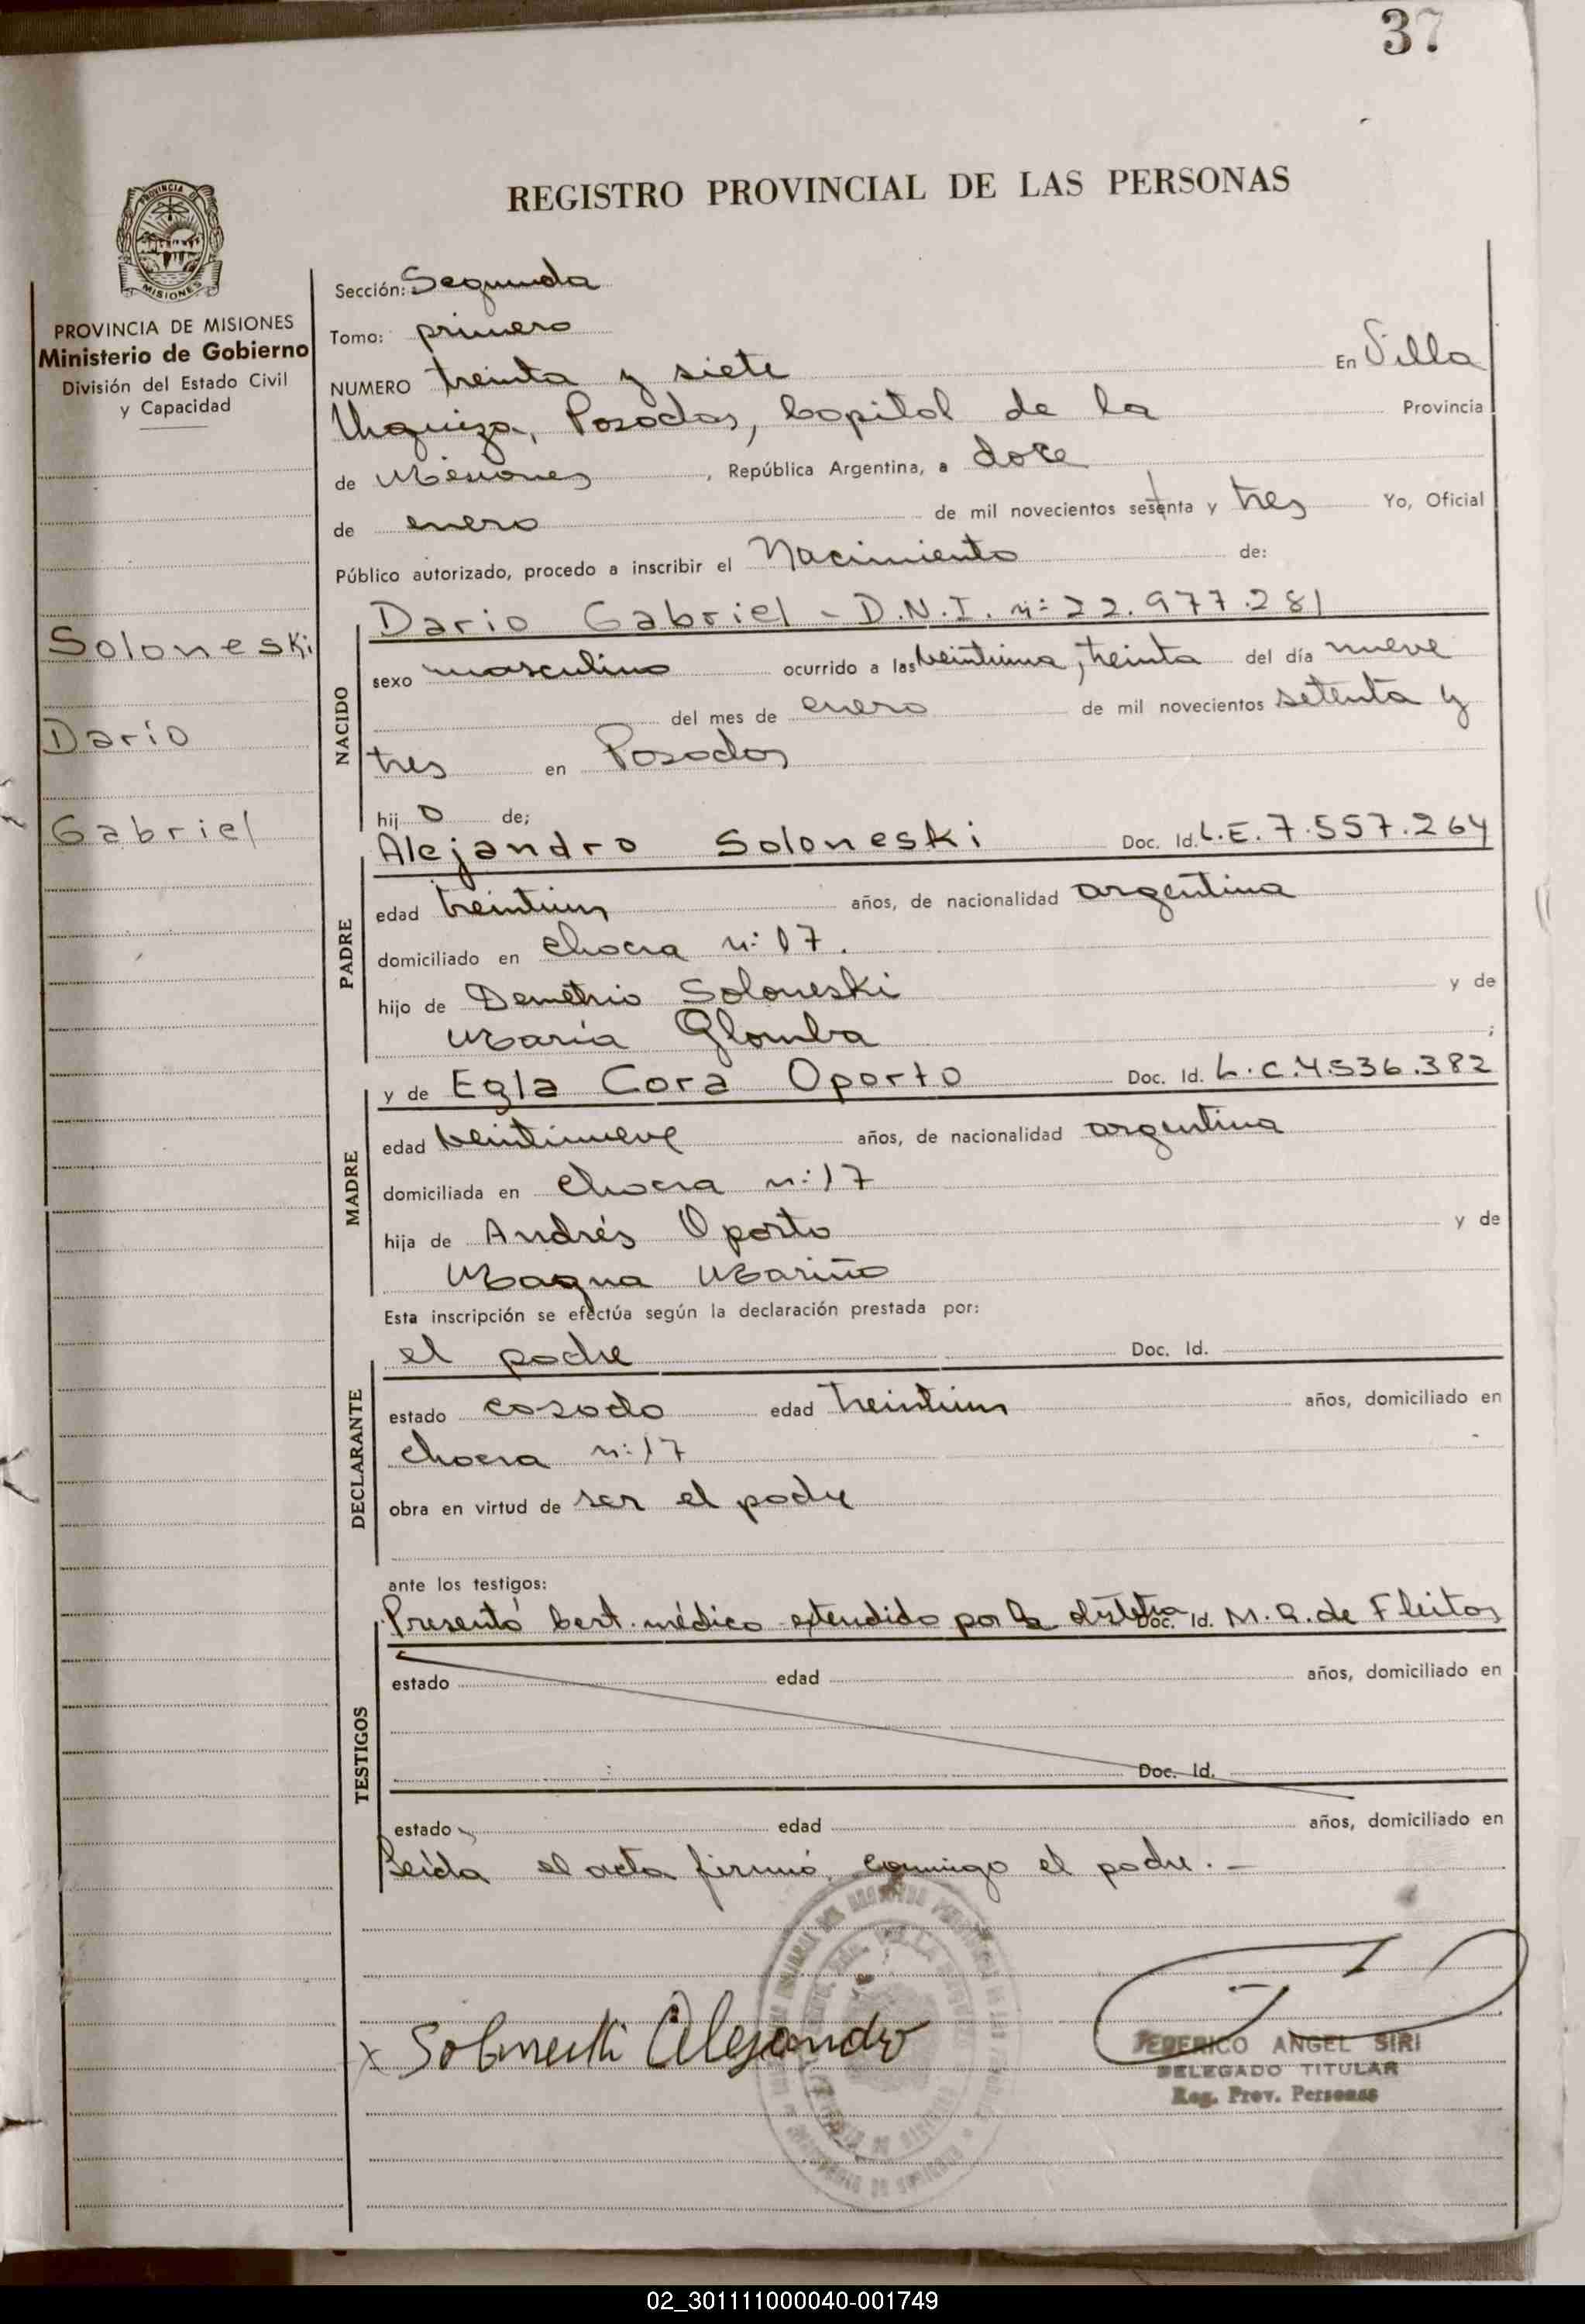 37
REGISTRO PROVINCIAL DE LAS PERSONAS
PROVINCIA DE MISIONES
MISIONES
PROVINCIA DE MISIONES
Ministerio de Gobierno
División del Estado Civil
y Capacidad
Soloneski
Darío
Gabriel
Sección: Segunda
Tomo: primero
NUMERO treinta y siete En Villa
Urquiza, Posadas, Capital de la Provincia
de Misiones, República Argentina, a doce
de enero de mil novecientos sesenta y tres Yo, Oficial
Público autorizado, procedo a inscribir el Nacimiento de:
NACIDO
Dario Gabriel - D.N.I. nº 22.977.281
sexo masculino ocurrido a las veintiuna, treinta del día nueve
del mes de enero de mil novecientos setenta y
tres en Posadas
hijo de;
PADRE
Alejandro Soloneski Doc. Id. L.E. 7.557.264
edad treintiun años, de nacionalidad argentina
domiciliado en chacra nº 17.
hijo de Demetrio Soloneski y de
María Glomba ;
MADRE
y de Egla Cora Oporto Doc. Id. L.C. 4.536.382
edad veintinueve años, de nacionalidad argentina
domiciliada en chacra nº 17
hija de Andrés Oporto y de
Magna Mariño
Esta inscripción se efectúa según la declaración prestada por:
DECLARANTE
el padre Doc. Id.
estado casado edad treintiun años, domiciliado en
chacra nº 17
obra en virtud de ser el padre
ante los testigos:
TESTIGOS
Presentó Cert. médico extendido por la Doc. Id. M. R. de Fleitas
estado edad años, domiciliado en
Doc. Id.
estado edad años, domiciliado en
Leída el acta firmó conmigo el padre. -
x Soloneski Alejandro
FEDERICO ANGEL SIRI
DELEGADO TITULAR
Reg. Prov. Personas
02_301111000040-001749